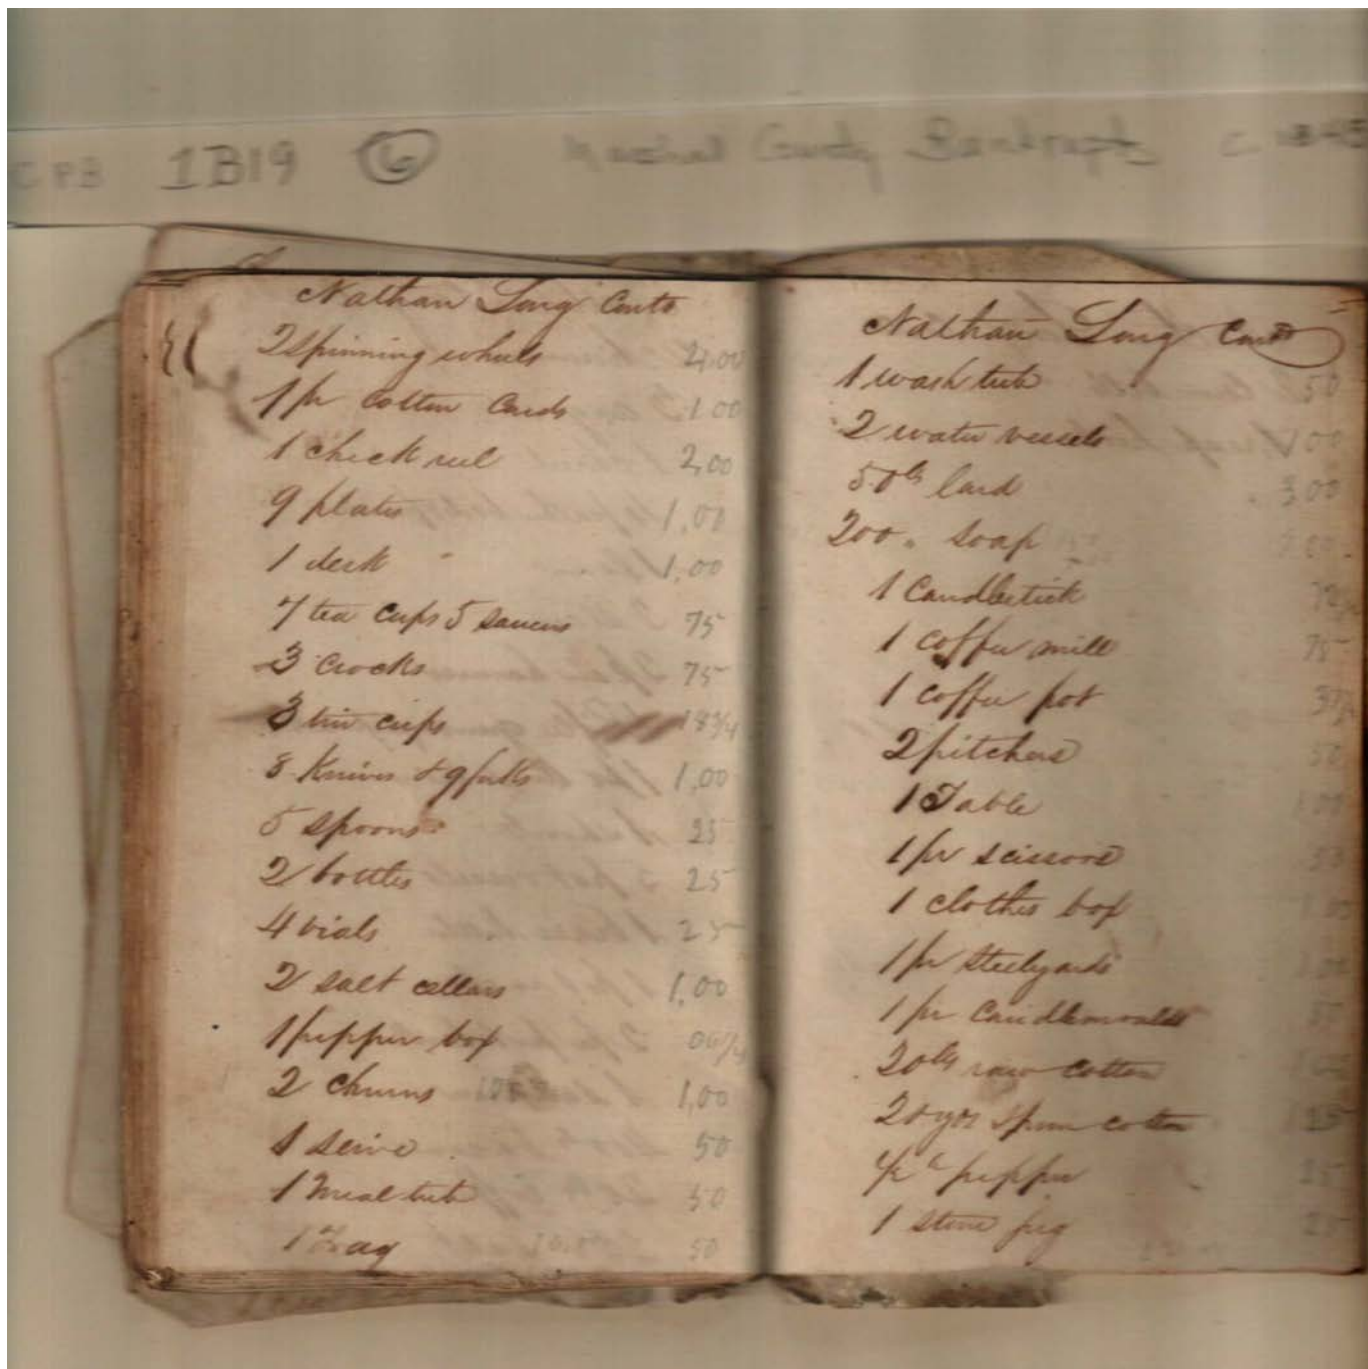 CPB 1B19 6 County Bankrupts C
Nathan Long Contd
2 spinning wheels 4.00
1 pr cotton Cards 1.00
1 check reel 2,00
9 plates 1,00
1 desk 1,00
7 tea cups 5 saucers 75
3 crocks 75
3 tin cups 18 3/4
8 Knives & 9 forks 1,00
5 spoons 25
2 bottles 25
4 vials 25
2 salt cellars 1,00
1 pepper box 06 1/4
2 churns 1,00
1 seive 50
1 Meal tub 50
1 50
Nathan Long Contd
1 wash tub 50
2 water vessels 1 00
50 lbs lard 3 00
200 " soap
1 Candlestick
1 coffee mill 75
1 coffee pot 37 1/2
2 pitchers 50
1 Table
1 pr scissors 50
1 clothes box
1 pr steelyards
1 pr Candlemoulds
20 lbs raw cotton
20 yds spun cotton 25
pepper 25
1 stone jug 25